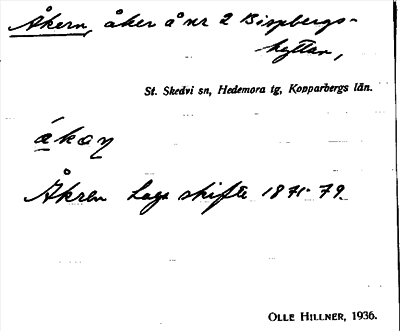 Åkern, åker å nr 2 Bispbergs-
hyttan,
St. Skedvi sn, Hedemora tg, Kopparbergs län.
Åkren Laga skifte 1871-79.
OLLE HILLNER, 1936.